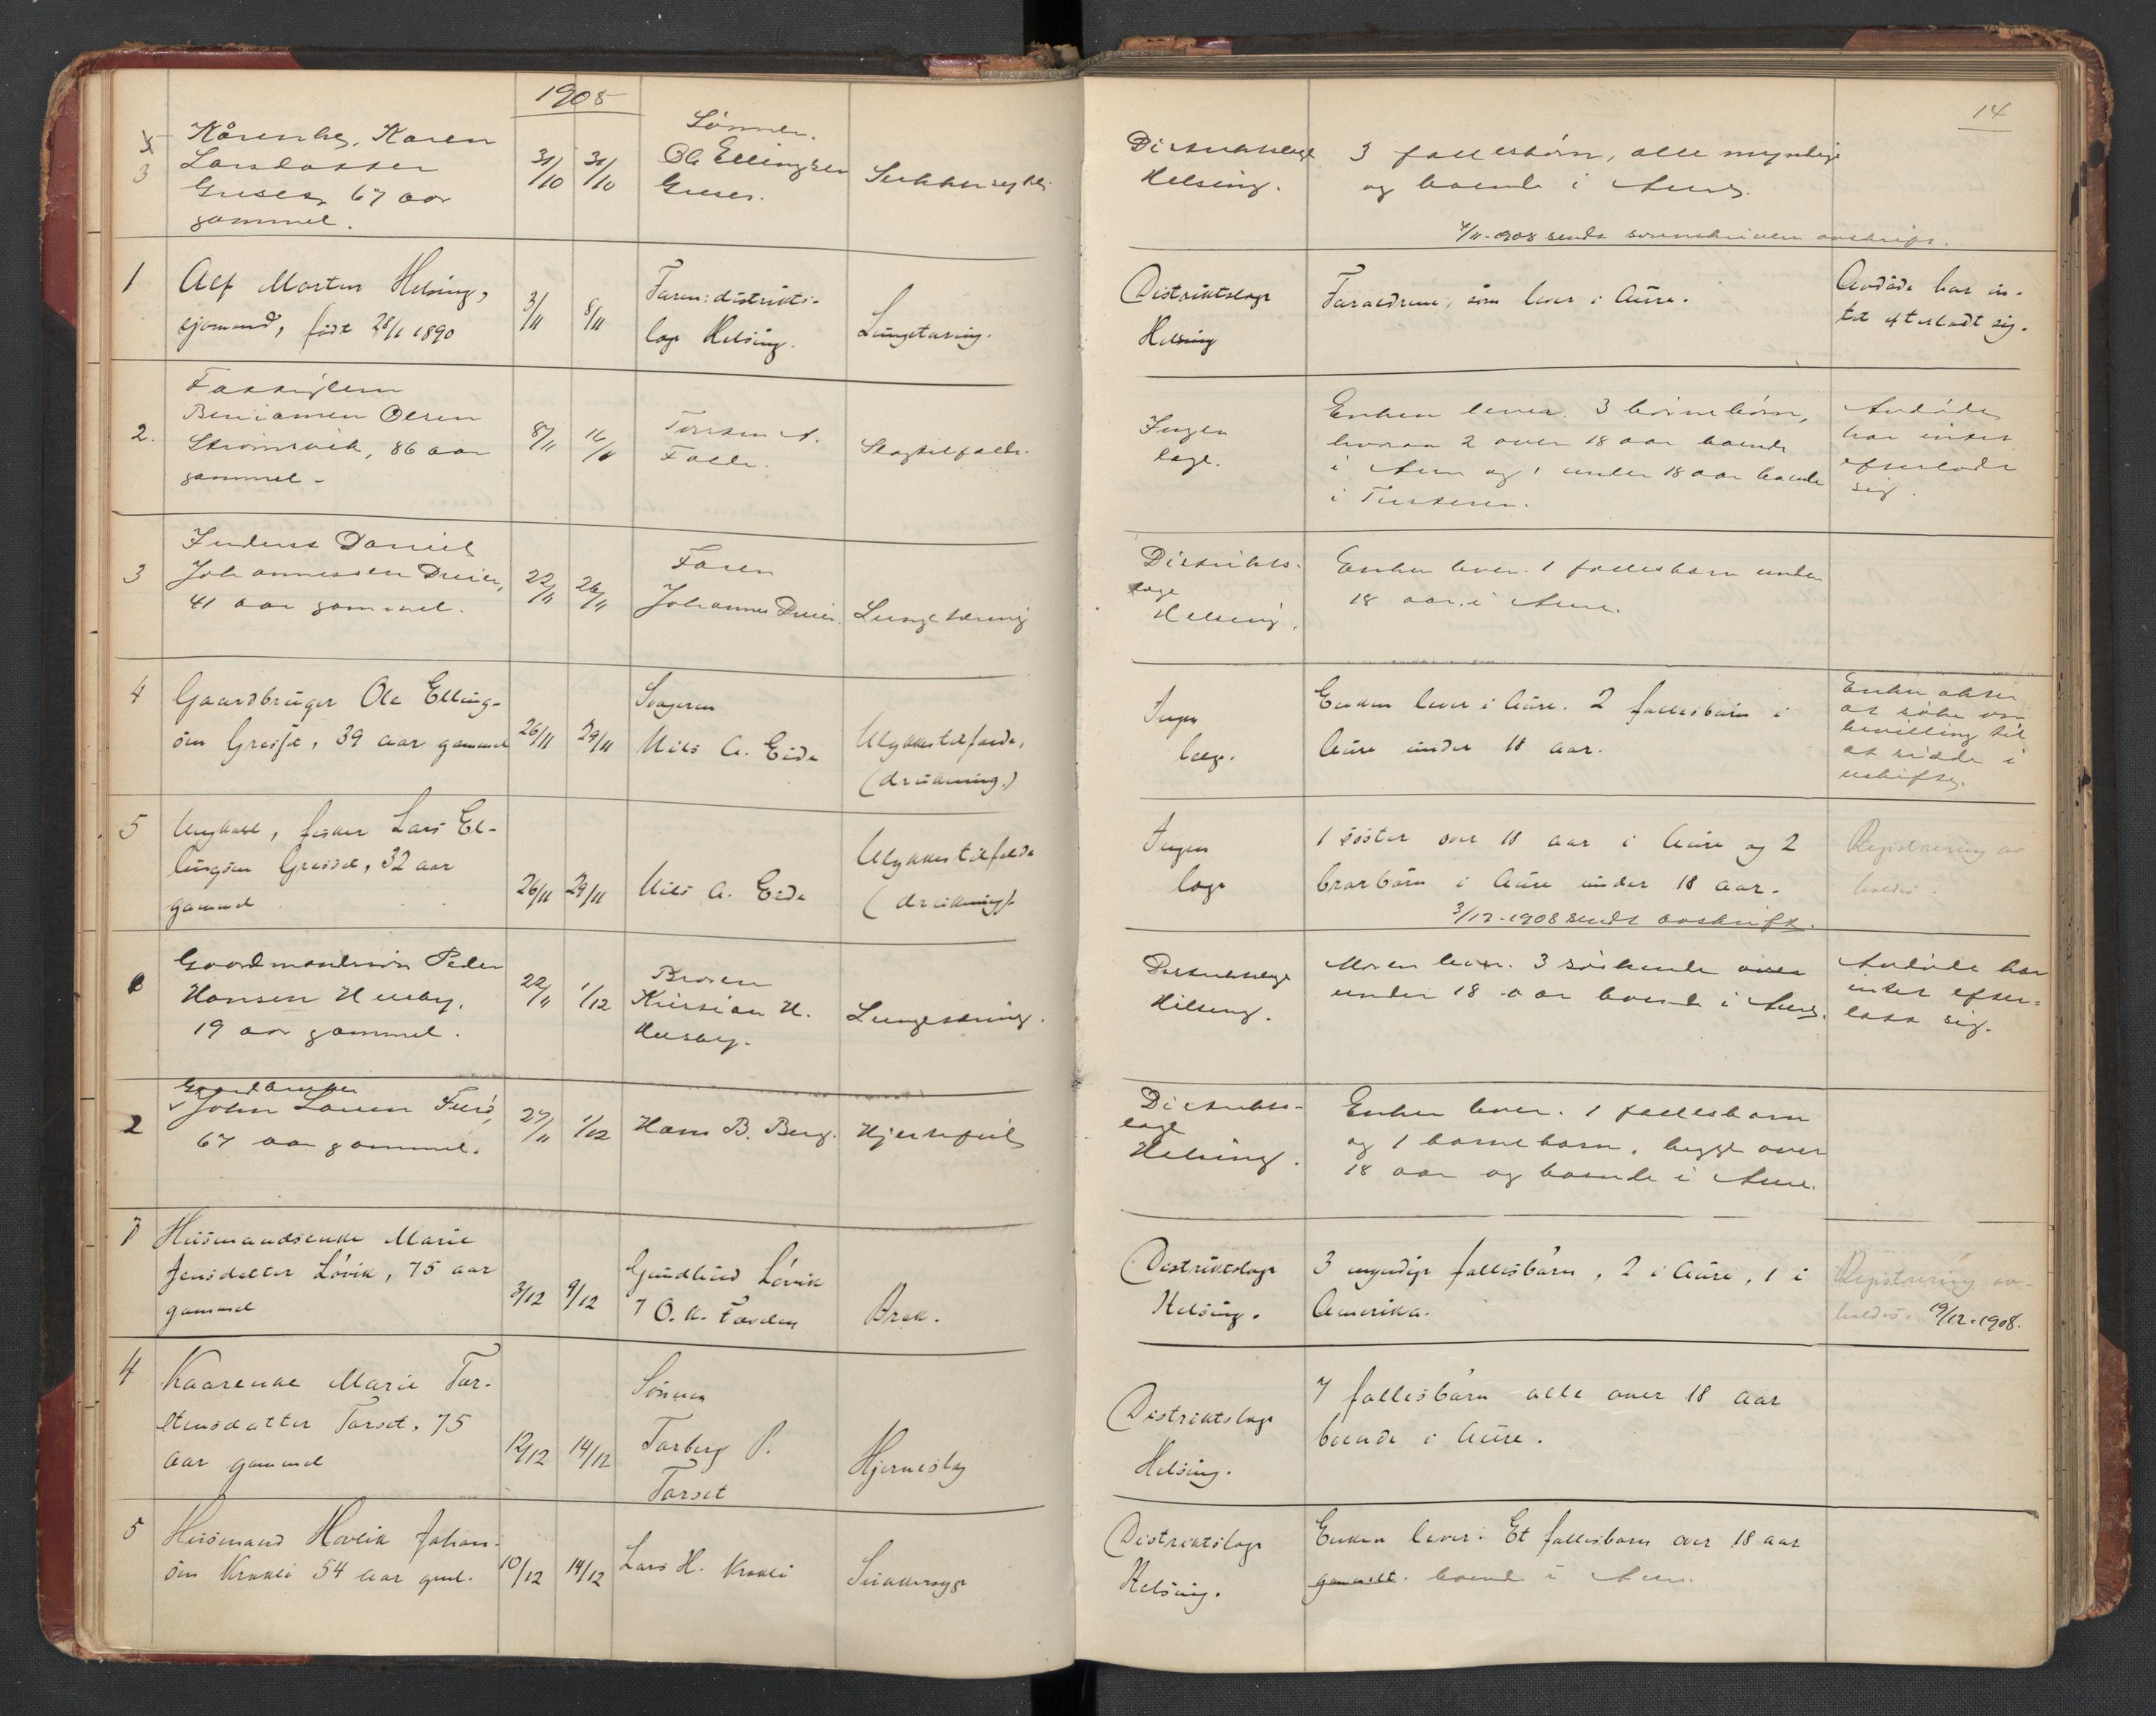 1908
14
3
Kårenke, Karen
Larsdatter
67 aar
gammel.
31/10 31/10
Sønnen.
Ole Ellingsen
Sukkersyke
Distriktslæge
Helsing.
3 fællesbørn, alle myndige
og boende i Aure.
4/11-908 sendt sorenskriveren avskrift.
1
Alf Morten Helsing,
sjømand, født 28/1 1890
3/11
8/11
Faren: distrikts-
læge Helsing.
Lungetæring.
Distriktslæge
Helsing
Forældrene, som lever i Aure.
Avdøde har in-
tet efterladt sig.
2.
Fattiglem
Beniamen Olsen
Strømsvik, 86 aar
gammel-
8/11
16/11
Torsten A.
Folde.
Slagtilfælde.
Ingen
læge.
Enken lever. 3 børnebørn,
hvorav 2 over 18 aar boende
i Aure og 1 under 18 aar boende
i Tusteren.
Avdøde
har intet
efterladt
sig.
3
Daniel
Johannessen Dreier,
41 aar gammel.
22/11
26/11
Faren
Johannes Dreier.
Lungetæring
Distrikts-
læge
Helsing.
Enken lever. 1 fællesbarn under
18 aar i Aure.
4
Gaardbruger Ole Elling-
sen Gresset, 39 aar gammel
26/11
29/11
Svogeren
Nils A. Eide
Ulykkestilfælde,
(drukning.)
Ingen
læge.
Enken lever i Aure. 2 fællesbarn i
Aure under 18 aar.
Enken akter
at søke om
bevilling til
at sidde i
uskifte.
5
Ungkarl, fisker Lars El-
lingsen Gresset, 32 aar
gammel
26/11
29/11
Nils A. Eide
Ulykkestilfælde
(drukning).
Ingen
læge
1 søster over 18 aar i Aure og 2
brorbørn i Aure under 18 aar.
3/12-1908 sendt avskrift.
Registrering av-
holdes.
6
Gaardmandssøn Peder
Hansen Husby,
19 aar gammel.
22/11
1/12
Broren
Kristian H.
Husby.
Lungetæring.
Distriktslæge
Helsing.
Moren lever. 3 søskende over
under 18 aar boende i Aure.
Avdøde har
intet efter-
latt sig.
2
Gaardbruker
John Larsen
67 aar gammel.
27/11
1/12
Hans B. Berg.
Hjertefeil
Distrikts-
læge
Helsing.
Enken lever. 1 fællesbarn
og 1 barnebarn, begge over
18 aar og boende i Aure.
7
Husmandsenke Marie
Jensdatter Løvik, 75 aar
gammel
3/12
9/12
Løvik
Brok.
Distriktslæge
Helsing.
3 myndige fællesbørn, 2 i Aure, 1 i
Amerika.
Registrering av-
holdes. 19/12-1908.
4
Kaarenke Marie Tor-
stensdatter Torset, 75
aar gammel
12/12
14/12
Sønnen
Torberg P.
Torset
Hjerneslag
Distriktslæge
Helsing.
7 fællesbørn alle over 18 aar
boende i Aure.
5
Husmand Hovlik Johan-
sen Krokli 54 aar gml.
10/12
14/12
Lars H. Krokli
Sukkersyge
Distriktslæge
Helsing.
Enken lever. Et fællesbarn over 18 aar
gammelt. boende i Aure.